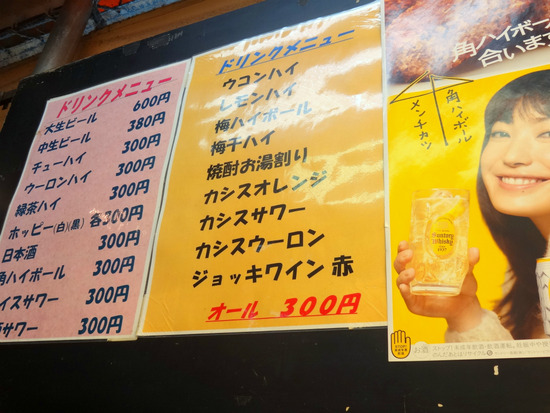 ドリンクメニュー
大生ビール 600円
中生ビール 380円
チューハイ 300円
ウーロンハイ 300円
緑茶ハイ 300円
ホッピー(白)(黒) 各300円
日本酒 300円
角ハイボール 300円
イスサワー 300円
サワー 300円
ドリンクメニュー
ウコンハイ
レモンハイ
梅ハイボール
梅干ハイ
焼酎お湯割り
カシスオレンジ
カシスサワー
カシスウーロン
ジョッキワイン 赤
オール 300円
角ハイボー
合いま
角ハイボール
メンチカツ
Suntory
Whisky
お酒